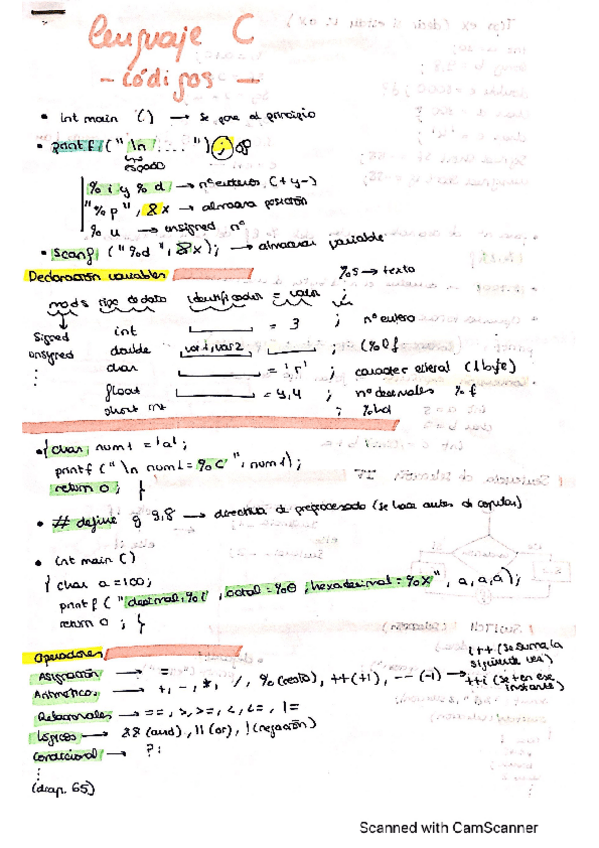 lenguaje C
- códigos -
• int main () → se pone al principio
• printf ("\n ..... ");
espacio
%i y %d → nº enteros (+ y -)
"%p", &x → almacena posición
%u → unsigned nº
• scanf ("%d", &x); → almacenar variable
Declaración variables
%s → texto
mods tipo de dato identificador = valor ;
signed
unsigned
int = 3 ; nº entero
double var1, var2 ; (%lf
char = 'r' ; caracter literal (1 byte)
float = 4,4 ; nº decimales %f
short int ; %hd
• { char num1 = 'a';
printf ("\n num1 = %c", num1);
return 0; }
• # define g 9,8 → directiva de preprocesado (se hace antes de compilar)
• int main ()
{ char a = 100;
printf ("decimal: %i, octal = %o, hexadecimal = %x", a, a, a);
return 0 ; }
Operadores
Asignación → =
Aritméticos → +, -, *, /, % (resto), ++ (+1), -- (-1) →
i++ (se suma la siguiente vez)
++i (se ten ese instante)
Relacionales → ==, >, >=, <, <=, !=
Lógicos → && (and), || (or), ! (negación)
Condicional → ?:
(diap. 65)
Scanned with CamScanner